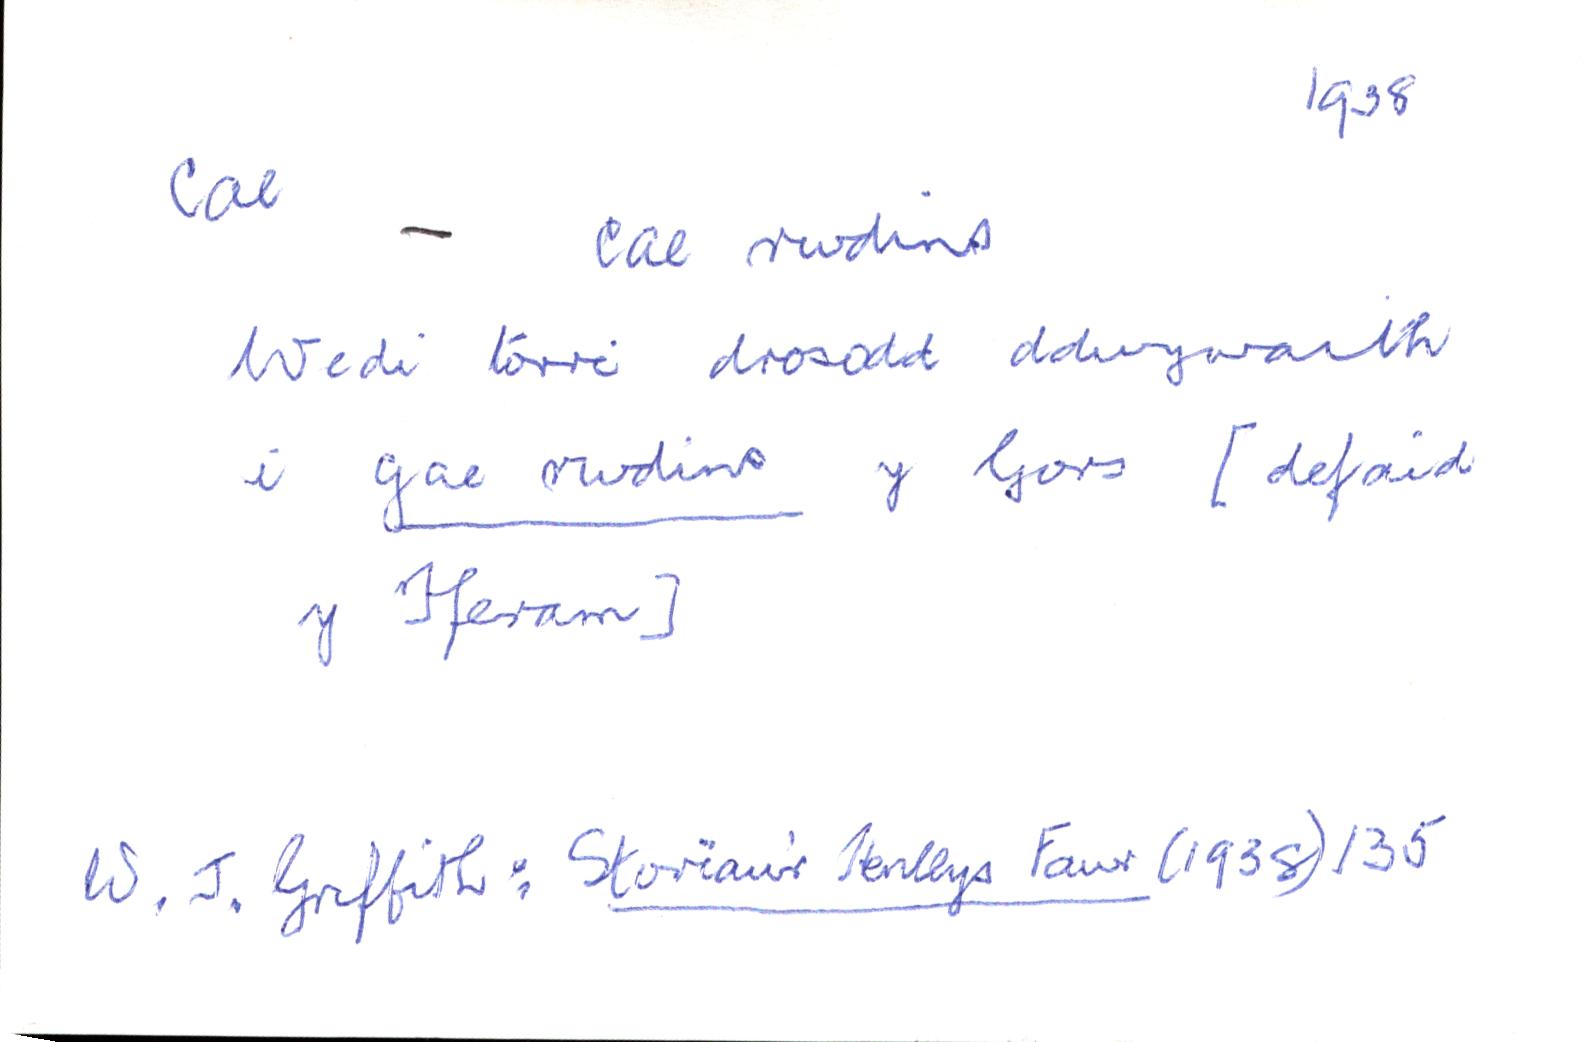 1938
Cae
— cae rwdins
Wedi torri drosodd ddwywaith
i gae rwdins y Gors [defaid
y Hferam]
W. J. Griffith: Storïau'r Henllys Fawr (1938) 135